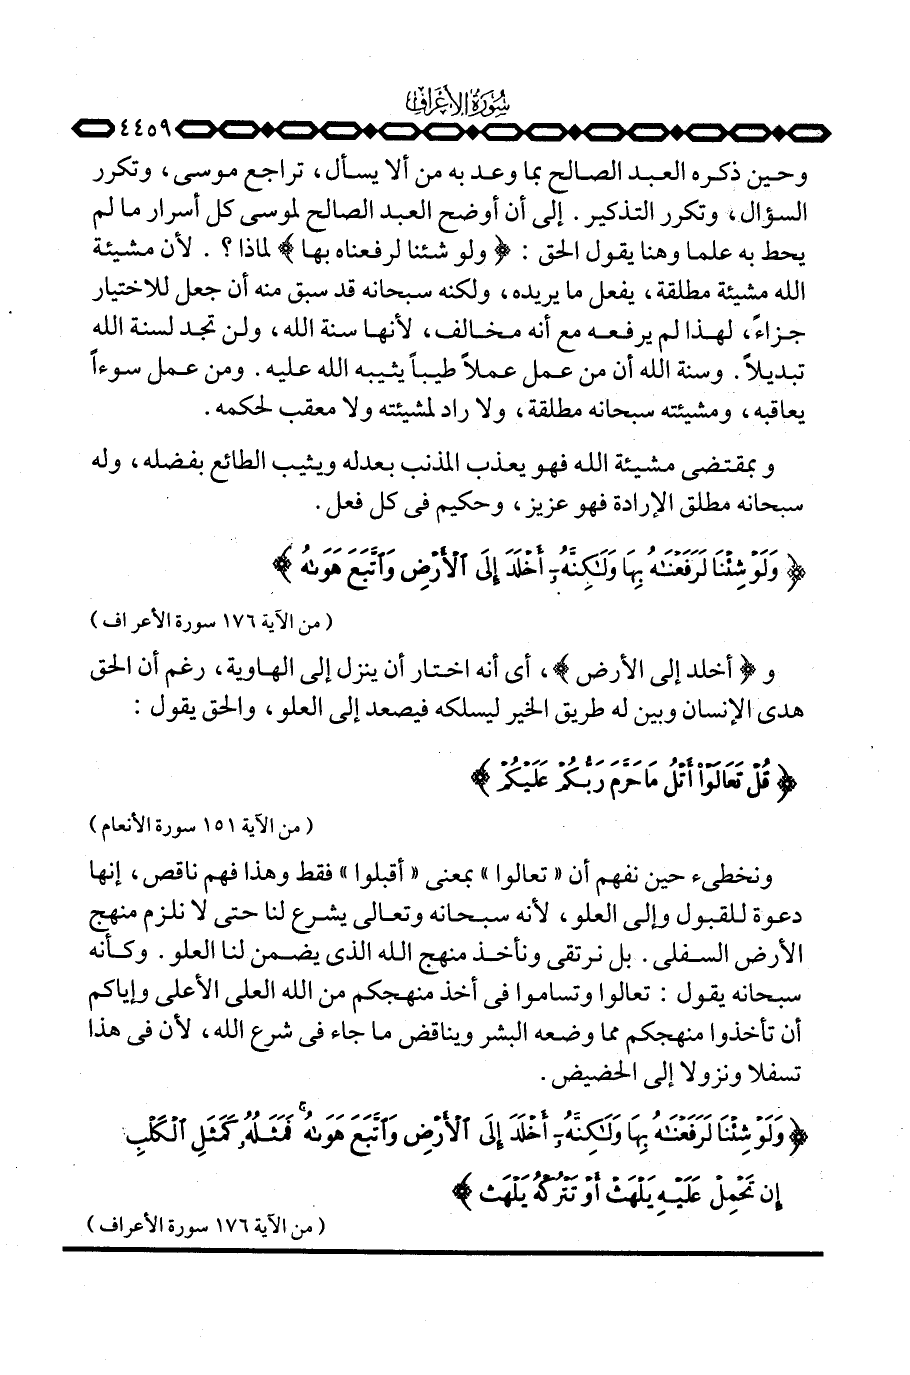 سورة الأعراف
٤٤٥٩
وحين ذكره العبد الصالح بما وعد به من ألا يسأل، تراجع موسى، وتكرر
السؤال، وتكرر التذكير. إلى أن أوضح العبد الصالح لموسى كل أسرار ما لم
يحط به علما وهنا يقول الحق : ﴿ ولو شئنا لرفعناه بها ﴾ لماذا ؟ . لأن مشيئة
الله مشيئة مطلقة، يفعل ما يريده، ولكنه سبحانه قد سبق منه أن جعل للاختيار
جزاءً، لهذا لم يرفعه مع أنه مخالف، لأنها سنة الله، ولن تجد لسنة الله
تبديلاً. وسنة الله أن من عمل عملاً طيباً يثيبه الله عليه. ومن عمل سوءاً
يعاقبه، ومشيئته سبحانه مطلقة، ولا راد لمشيئته ولا معقب لحكمه.
و بمقتضى مشيئة الله فهو يعذب المذنب بعدله ويثيب الطائع بفضله، وله
سبحانه مطلق الإرادة فهو عزيز، وحكيم فى كل فعل.
﴿ وَلَوْ شِئْنَا لَرَفَعْنَٰهُ بِهَا وَلَٰكِنَّهُۥٓ أَخْلَدَ إِلَى ٱلْأَرْضِ وَٱتَّبَعَ هَوَىٰهُ ﴾
( من الآية ١٧٦ سورة الأعراف )
و ﴿ أخلد إلى الأرض ﴾، أى أنه اختار أن ينزل إلى الهاوية، رغم أن الحق
هدى الإنسان وبين له طريق الخير ليسلكه فيصعد إلى العلو، والحق يقول :
﴿ قُلْ تَعَالَوْا۟ أَتْلُ مَا حَرَّمَ رَبُّكُمْ عَلَيْكُمْ ﴾
( من الآية ١٥١ سورة الأنعام )
ونخطىء حين نفهم أن « تعالوا » بمعنى « أقبلوا » فقط وهذا فهم ناقص، إنها
دعوة للقبول وإلى العلو، لأنه سبحانه وتعالى يشرع لنا حتى لا نلزم منهج
الأرض السفلى. بل نرتقى ونأخذ منهج الله الذى يضمن لنا العلو. وكأنه
سبحانه يقول : تعالوا وتساموا فى أخذ منهجكم من الله العلى الأعلى وإياكم
أن تأخذوا منهجكم مما وضعه البشر ويناقض ما جاء فى شرع الله، لأن فى هذا
تسفلا ونزولا إلى الحضيض.
﴿ وَلَوْ شِئْنَا لَرَفَعْنَٰهُ بِهَا وَلَٰكِنَّهُۥٓ أَخْلَدَ إِلَى ٱلْأَرْضِ وَٱتَّبَعَ هَوَىٰهُ ۚ فَمَثَلُهُۥ كَمَثَلِ ٱلْكَلْبِ
إِن تَحْمِلْ عَلَيْهِ يَلْهَثْ أَوْ تَتْرُكْهُ يَلْهَث ﴾
( من الآية ١٧٦ سورة الأعراف )